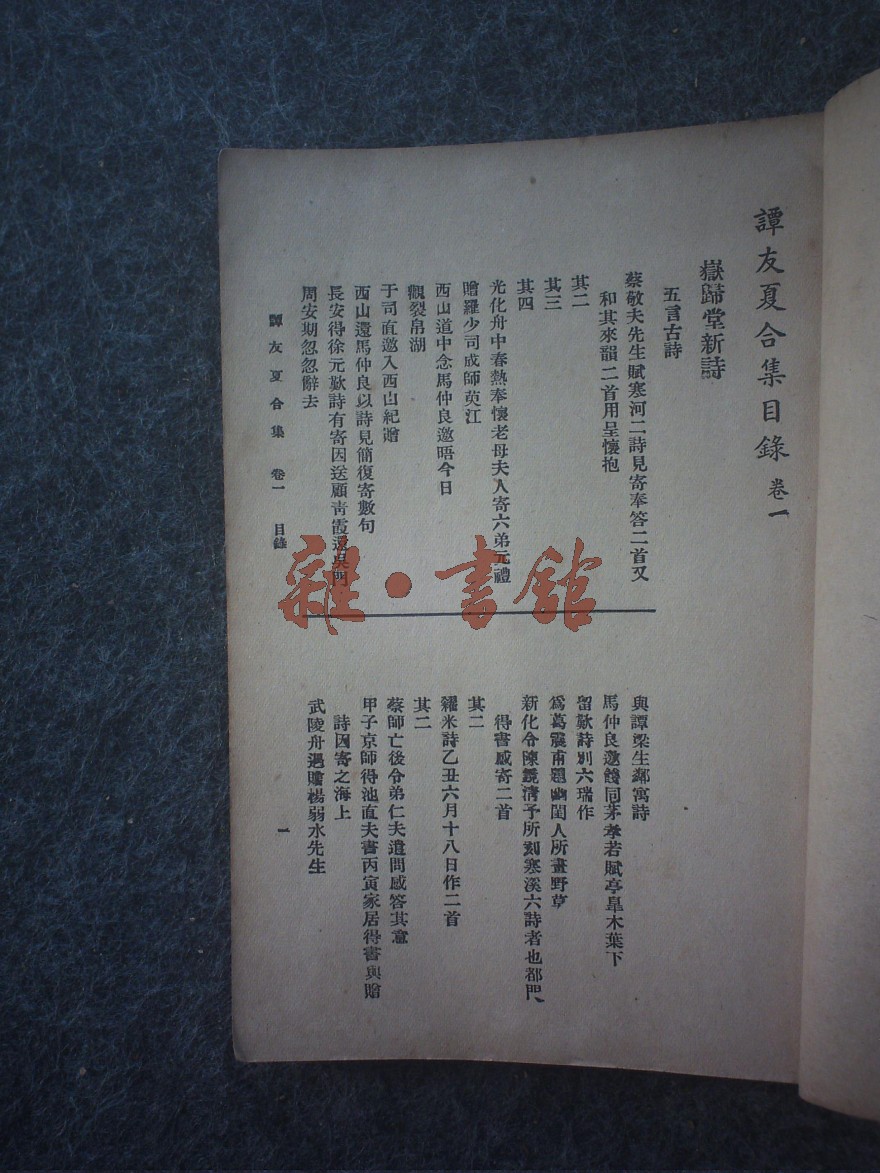 譚友夏合集目錄 卷一
嶽歸堂新詩
五言古詩
蔡敬夫先生賦寒河二詩見寄奉答二首又
和其來韻二首用呈懷抱
其二
其三
其四
光化舟中春熱奉懷老母夫人寄六弟元禮
贈羅少司成師萸江
西山道中念馬仲良邀晤今日
觀裂帛湖
于司直邀入西山紀贈
西山還馬仲良以詩見簡復寄數句
長安得徐元歎詩有寄因送顧青霞還吳門
周安期忽忽辭去
與譚梁生鄰寓詩
馬仲良邀餞同茅孝若賦亭皐木葉下
留歎詩別六瑞作
爲葛震甫題幽閨人所畫野草
新化令陳鏡清予所刻寒溪六詩者也都門
得書感寄二首
其二
糴米詩乙丑六月十八日作二首
其二
蔡師亡後令弟仁夫遣問感答其意
甲子京師得池直夫書丙寅家居得書與贈
詩因寄之海上
武陵舟遇贈楊弱水先生
譚友夏合集 卷一 目錄
一
雜·書館